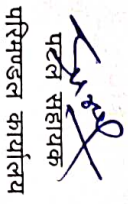 पटल सहायक
परिमण्डल कार्यालय